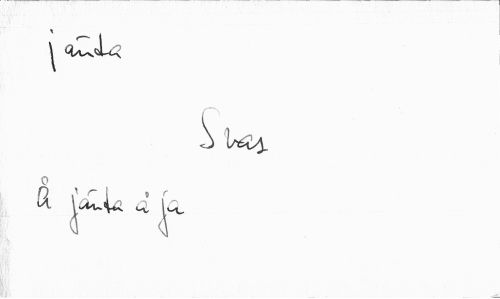 jänta
Svas
Å jänta å ja